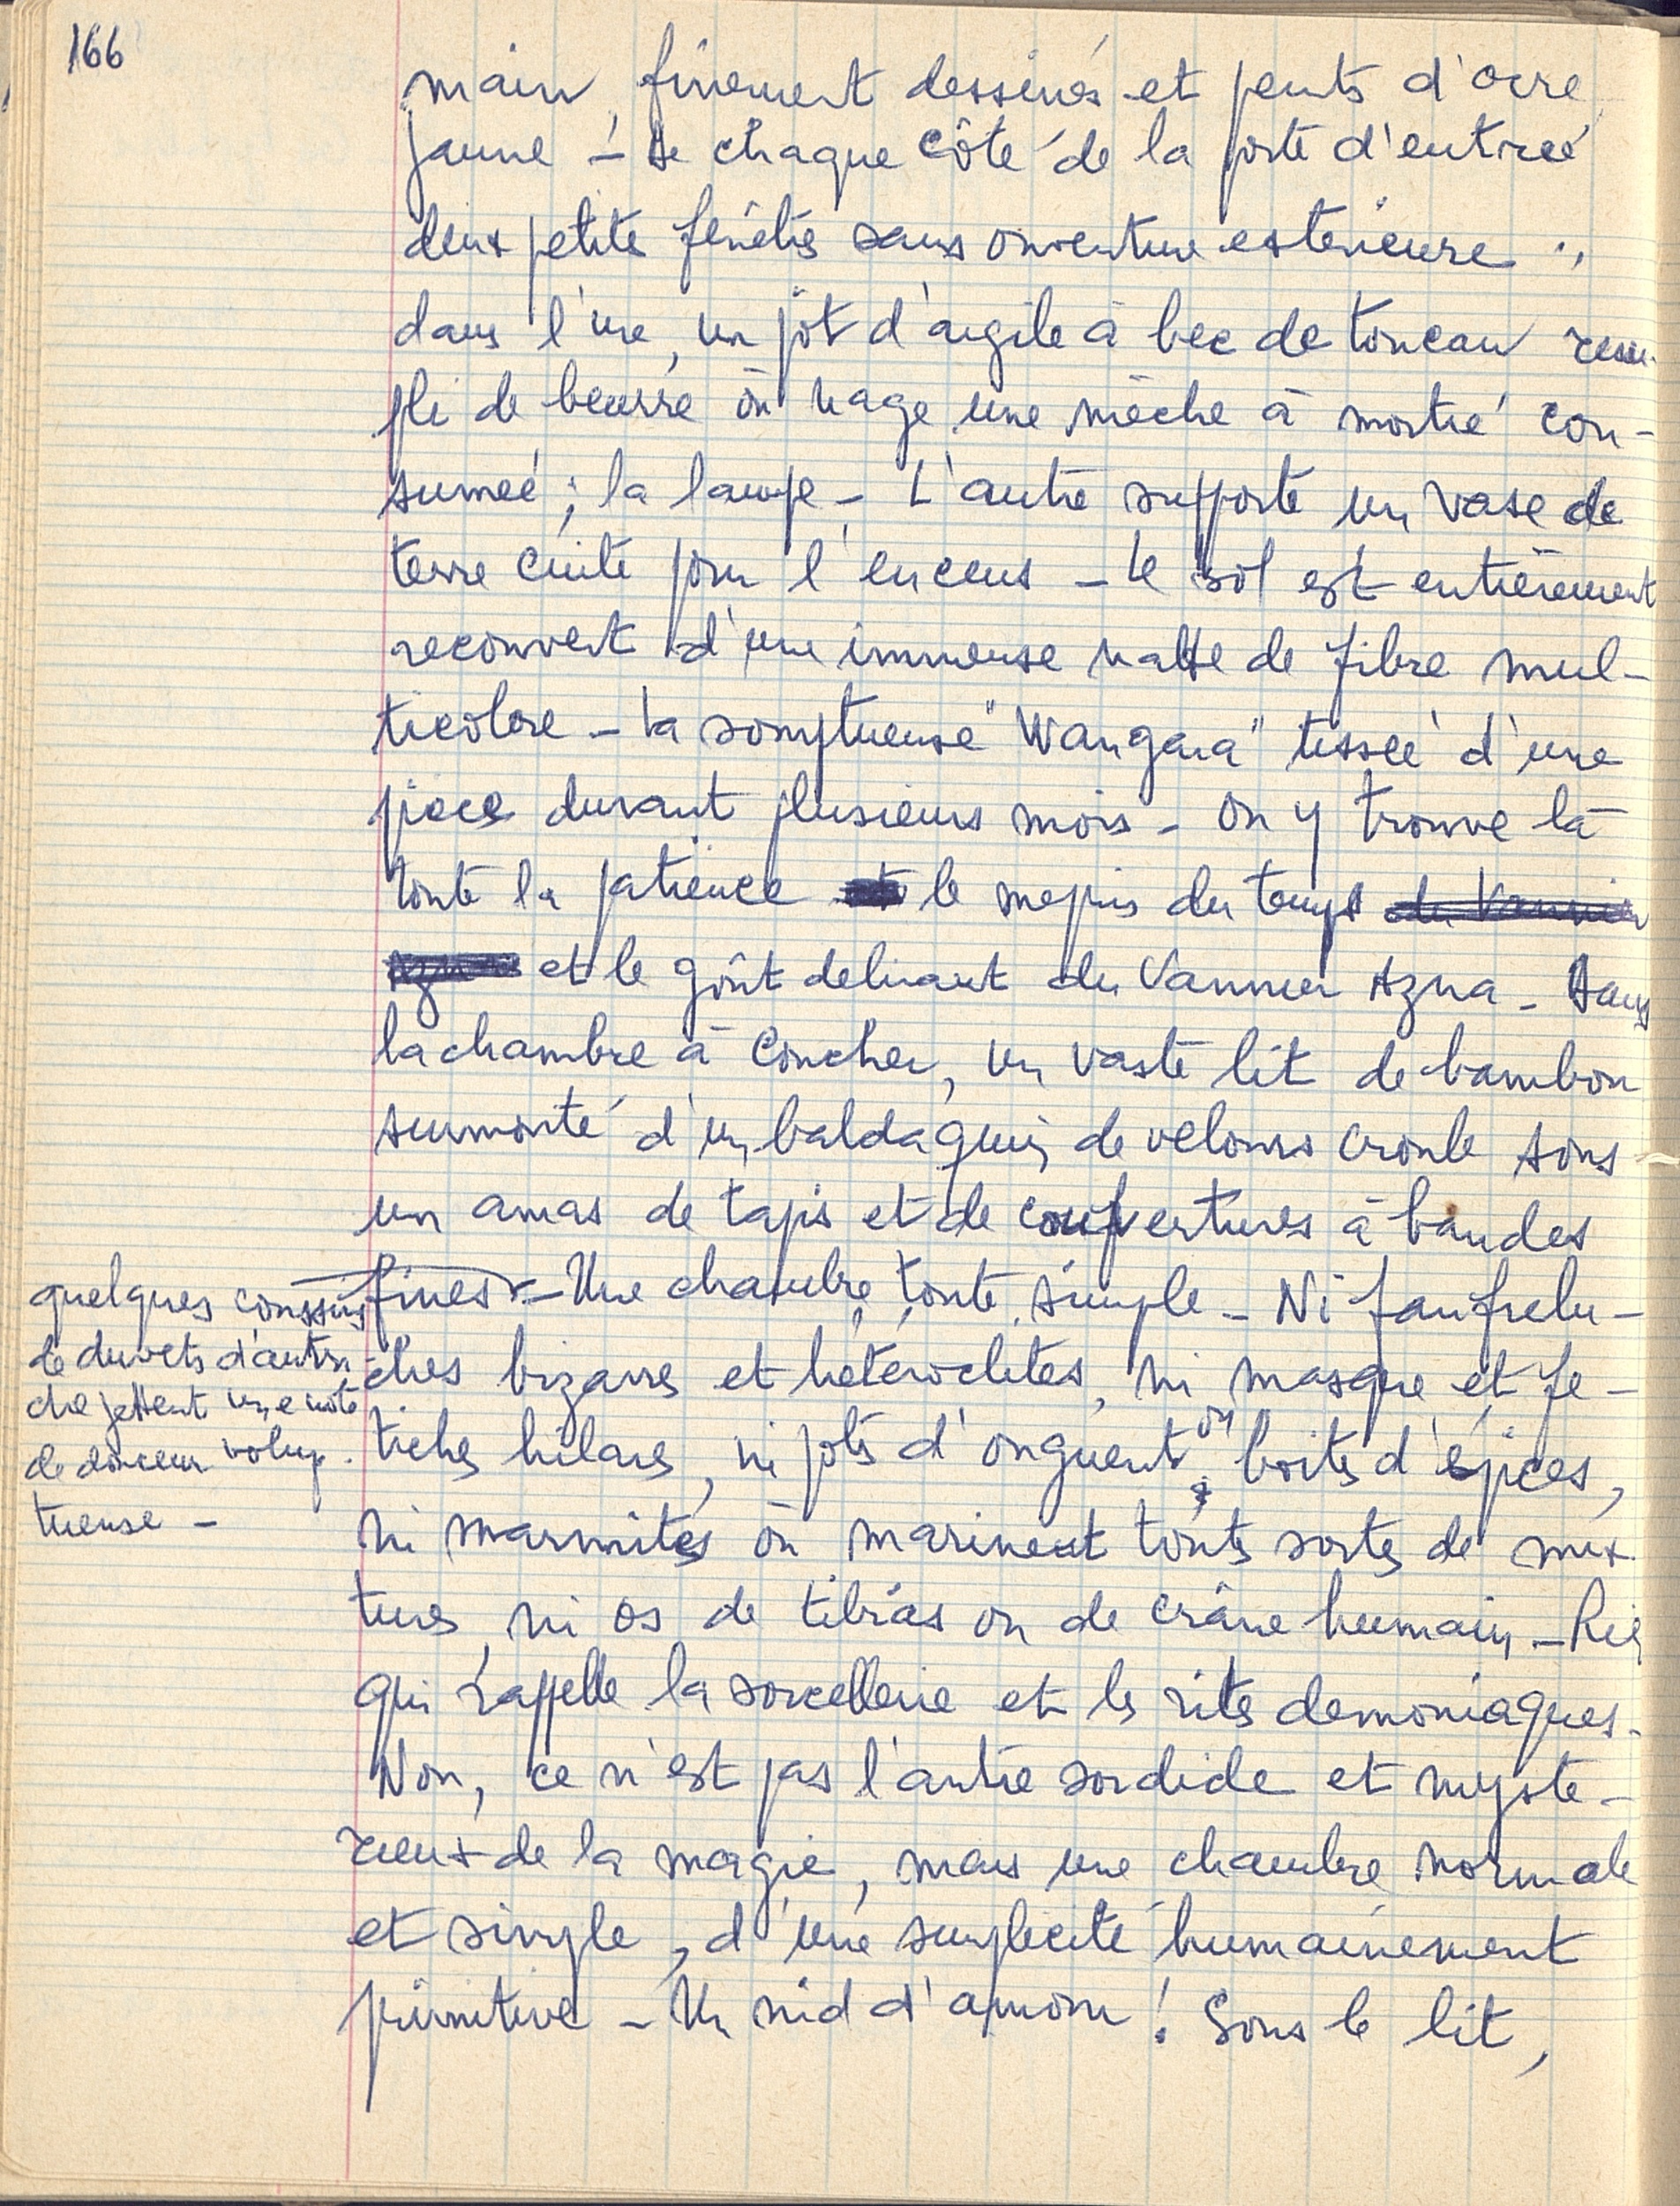 166
main, finement dessinés et peints d'ocre
jaune - De chaque côté de la porte d'entrée
deux petites fenêtres sans ouverture exterieure :
dans l'une, un pot d'argile à bec de toucan rem-
pli de beurre où nage une mèche à moitié con-
sumée ; la lampe - L'autre supporte un vase de
terre cuite pour l'encens - Le sol est entièrement
recouvert d'une immense natte de fibre mul-
ticolore - La somptueuse "Wangara" tissée d'une
piece durant plusieurs mois - On y trouve là
toute la patience le mepris du temps du Vannier
azna et le goût delirant du Vannier Azna - Dans
la chambre à coucher, un vaste lit de bambou
surmonté d'un baldaquin de velours croule sous
un amas de tapis et de couvertures à bandes
fines - Une chambre toute simple - Ni fanfrelu-
ches bizarres et hétéroclites, ni masque et fe-
tiches hilares, ni pots d'onguent ou boites d'épices,
ni marmites où marinent toutes sortes de mix-
tures, ni os de tibias ou de crâne humain - Rien
qui rappelle la sorcellerie et les rites demoniaques.
Non, ce n'est pas l'antre sordide et myste-
rieux de la magie, mais une chambre normale
et simple, d'une simplicité humainement
primitive - Un nid d'amour ! Sous le lit,
quelques coussins
de duvets d'autru
che jettent une note
de douceur volup-
tueuse -